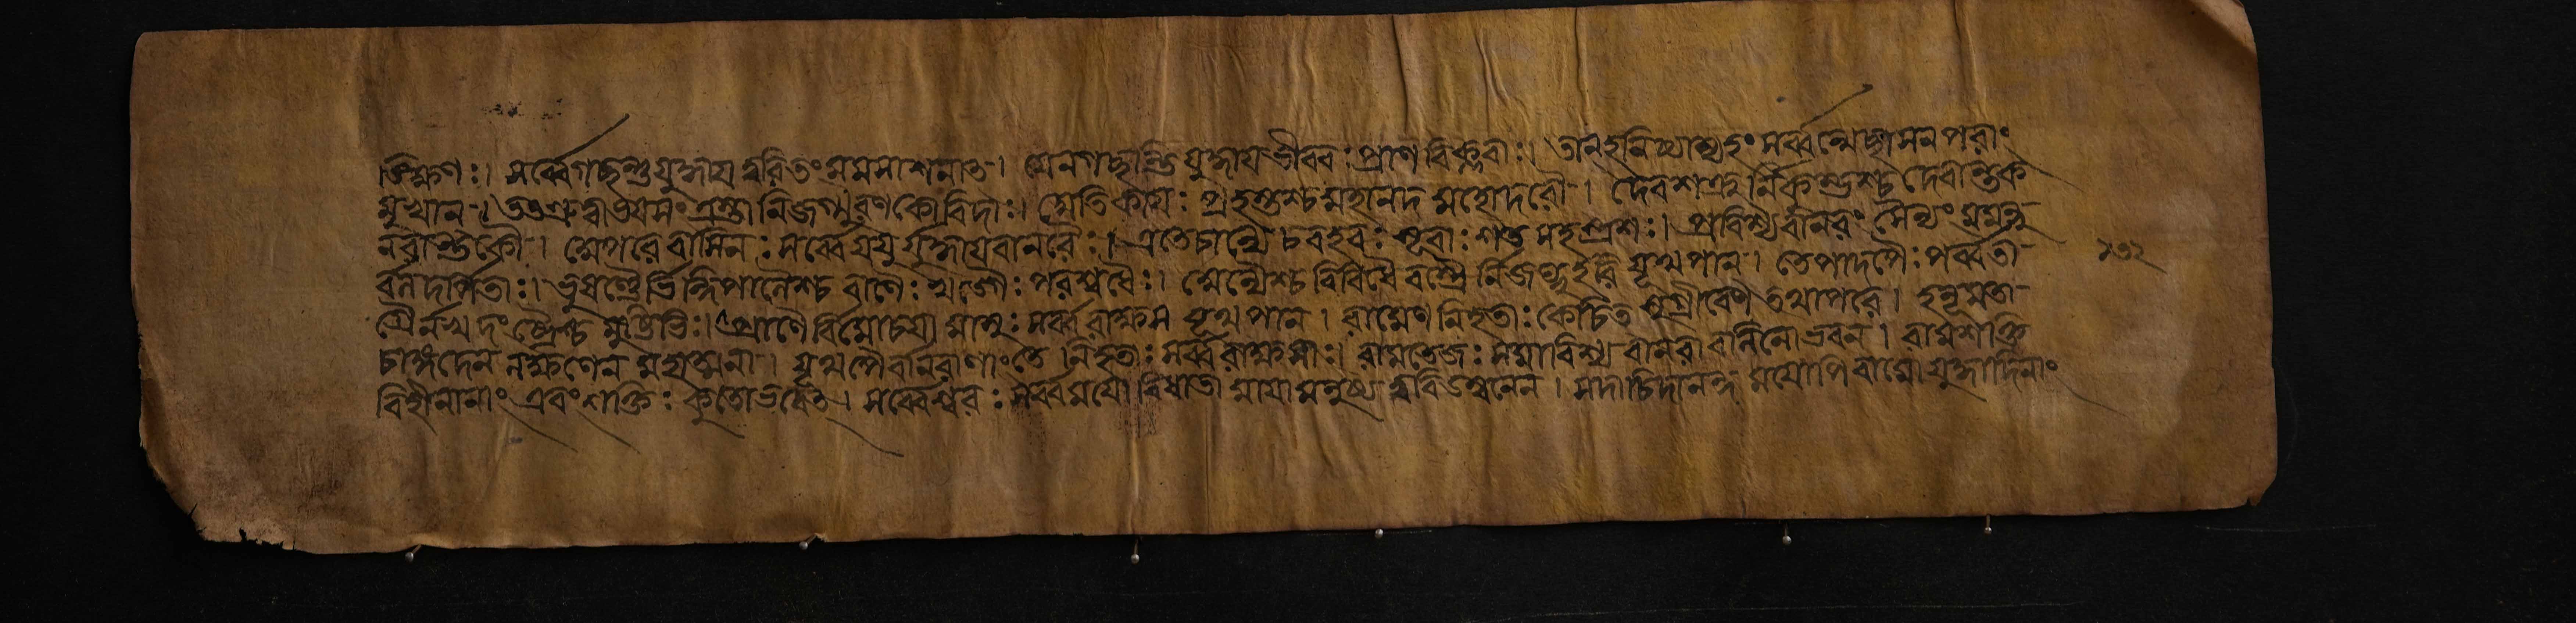 তিক্ষণঃ। সর্ব্বেগচ্ছন্তুযুদ্ধায ত্বরিতং মমসাশনাত। যেনগচ্ছান্তিযুদ্ধায ভীববঃ প্ৰাণ বিক্লবাঃ। তানহনিষ্যাম্যহং সর্ব্বন্মেচ্ছাসনপরাং
মুখান। তৎশ্ৰুত্বাভযসং ত্ৰস্তা নিৰ্জগ্মুৰণকোবিদাঃ। মেতিকাযঃ প্ৰহস্তশ্চ মহানদ মহোদরৌ। দেবশত্ৰু ৰ্নিকুম্ভশ্চ দেবান্তক
নরান্তকৌ। মেপরেবাসিনঃ সর্ব্বেযযুৰ্যুদ্ধাযবানরৈঃ। এতেচান্যে চবহবঃ শূবাঃ শত সহশ্ৰশঃ। প্ৰাবিশ্যবানরং সৈন্যং মমন্থু
ৰ্বনদৰ্পিতাঃ। ভুষণ্ডৈৰ্ভিন্দিপানৈশ্চ বাণৈঃ খড্গৈঃ পরশ্বধৈঃ। মেন্যৈশ্চ বিবিধৈ বস্ত্ৰৈ ৰ্নিজঘ্নুৰ্হরি যূথপান। তেপাদপৈঃ পৰ্ব্বতা
গ্ৰৈৰ্নখ দংষ্ট্ৰৈশ্চ মুষ্টিভিঃ। প্ৰাণৈৰ্বিমোচযা মাসুঃ সৰ্ব্বরাক্ষস যূথপান। রামেণ নিহতাঃ কেচিত শুগ্ৰীবেণ তথাপরে। হনূমতা
চাঙ্গদেন নক্ষণেন মহাত্মনা। যূথপৈৰ্বানরাণাংতে নিহতাঃ সৰ্ব্বরাক্ষসাঃ। রামতেজঃ সমাবিশ্য বানরা বানিনোভবন। বামশক্তি
বিহীনানাং এবংশক্তিঃ কুতোভবেত। সৰ্ব্বেশ্বরঃ সৰ্ব্বমযো বিধাতা মাযামনুষ্য ত্ববিডম্বনেন। সদাচিদানন্দ মযোপিবামো যুদ্ধাদিনাং
১৩২